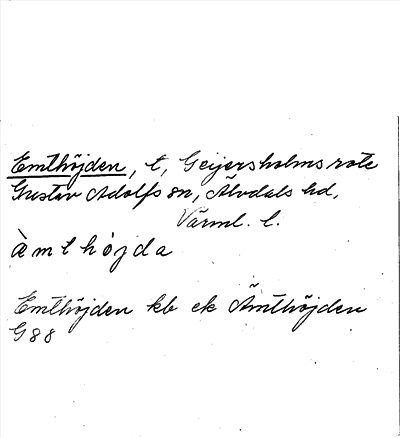 Emthöjden, t, Geijersholms rote
Gustav Adolfs sn, Älvdals hd,
Värml. l.
æ̀mthöjda
Emthöjden kb ek Ämthöjden
G88